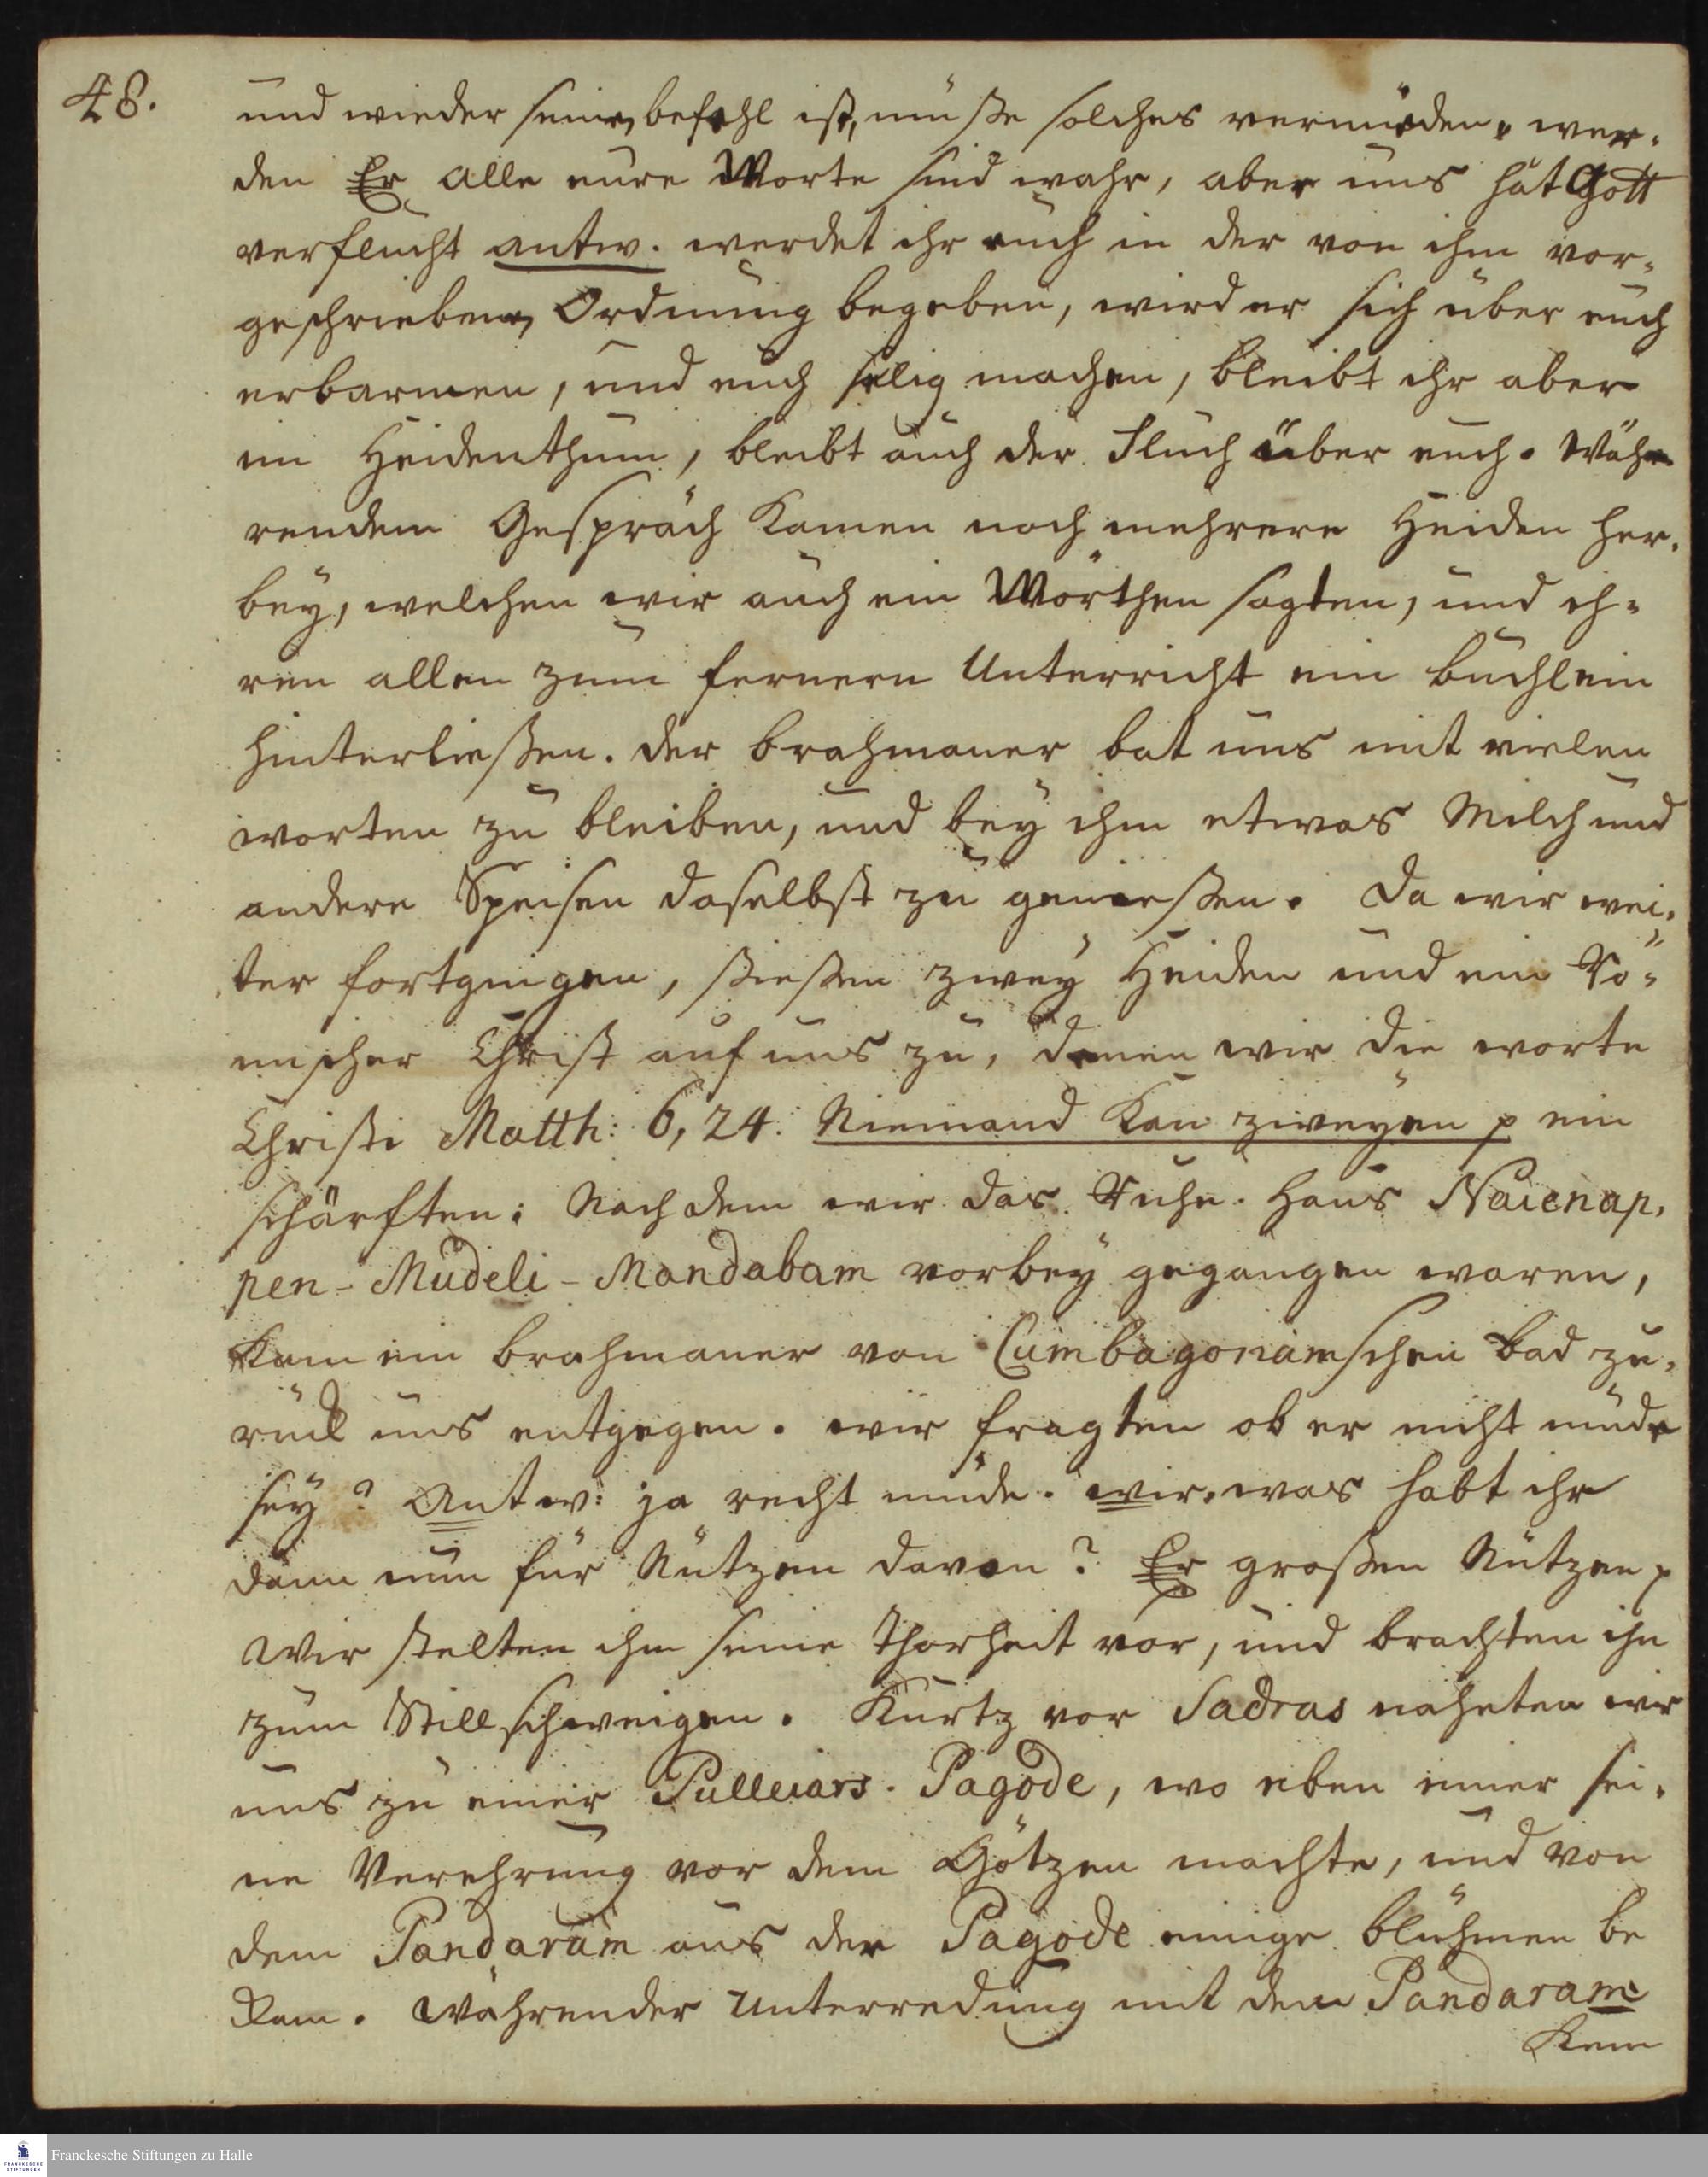 48.
und wieder seinen befehl ist, müsse solches vermieden wer-
den Er Alle eure Worte sind wahr, aber uns hat Gott
verflucht antw. werdet ihr euch in der von ihm vor-
geschriebenen Ordnung begeben, wird er sich über euch
erbarmen, und euch selig machen, bleibt ihr aber
im Heidenthum, bleibt auch der Fluch über euch. Wäh-
rendem Gespräch kamen noch mehrere Heiden her-
bey, welchen wir auch ein Wörthen sagten, und ih-
ren allen zum fernern Unterricht ein büchlein
hinterließen. der brahmaner bat uns mit vielen
worten zu bleiben, und bey ihm etwas Milch und
andere Speisen daselbst zu geniessen. Da wir wei-
ter fortgingen, stießen zwey Heiden und ein Rö-
mischer Christ auf uns zu, denen wir die worte
Christi Matth: 6, 24. Niemand kan zweyen p ein
schärften: Nachdem wir das Ruhe-Haus Naienap-
pen-Mudeli-Mandabam vorbey gegangen waren,
kam ein brahmaner von Cumbagonamschen bad zu-
rück uns entgegen. wir fragten ob er nicht müde
sey? Antw: ja recht müde. wir. was habt ihr
dann nun für Nutzen davon? Er großen Nutzen p
Wir stelten ihm seine Thorheit vor, und brachten ihn
zum Stillschweigen. Kurtz vor Sadras naheten wir
uns zu einer Pulleiars-Pagode, wo eben einer sei-
ne Verehrung vor dem Götzen machte, und von
dem Pandaram aus der Pagode einige bluhmen be
kam. Währender Unterredung mit dem Pandaram
kam